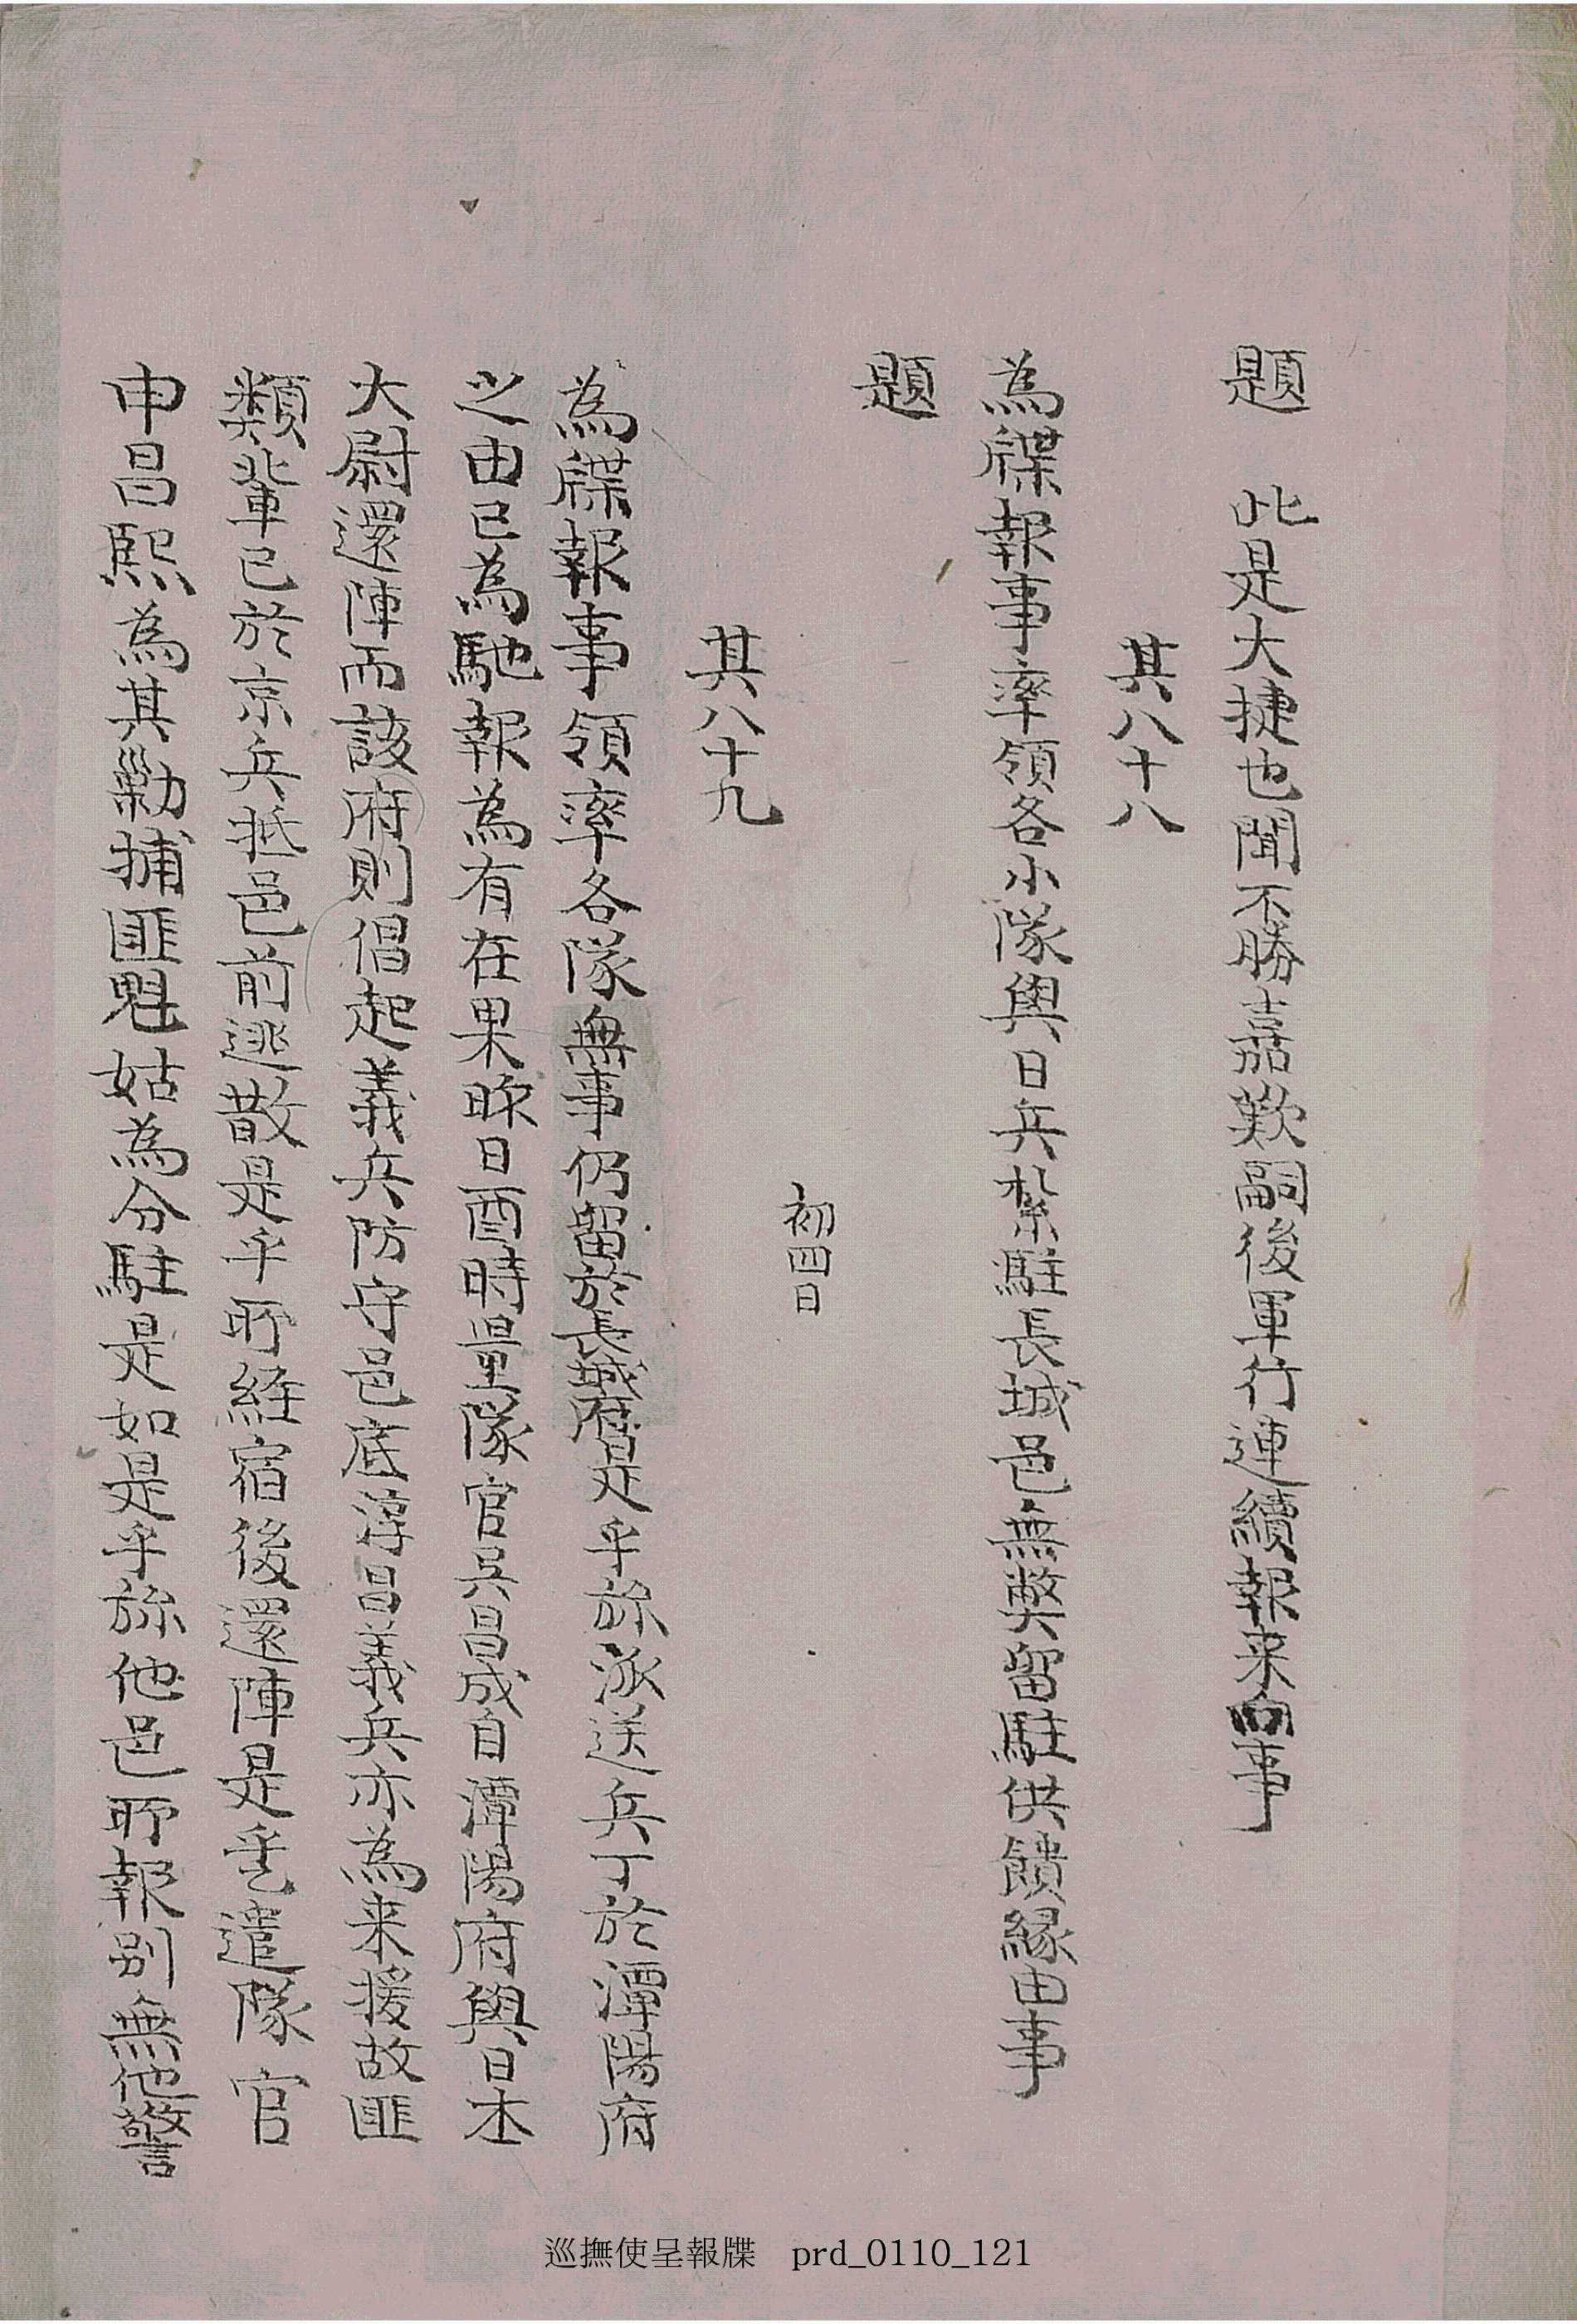 題　此是大捷也聞不勝嘉歎嗣後軍行連續報来向事
其八十八
為牒報事率領各小隊與日兵紮駐長城邑無弊留駐供饋緣由事
題
初四日
其八十九
為牒報事領率各隊無事仍留於長城府是乎旀派送兵丁於潭陽府
之由已為馳報為有在果昨日酉時量隊官吳昌成自潭陽府與日本
大尉還陣而該府則倡起義兵防守邑底淳昌義兵亦為来援故匪
類輩已於京兵抵邑前逃散是乎所経宿後還陣是乎乙遣隊官
申昌熙為其勦捕匪魁姑為分駐是如是乎旀他邑所報別無他警
巡撫使呈報牒　prd_0110_121